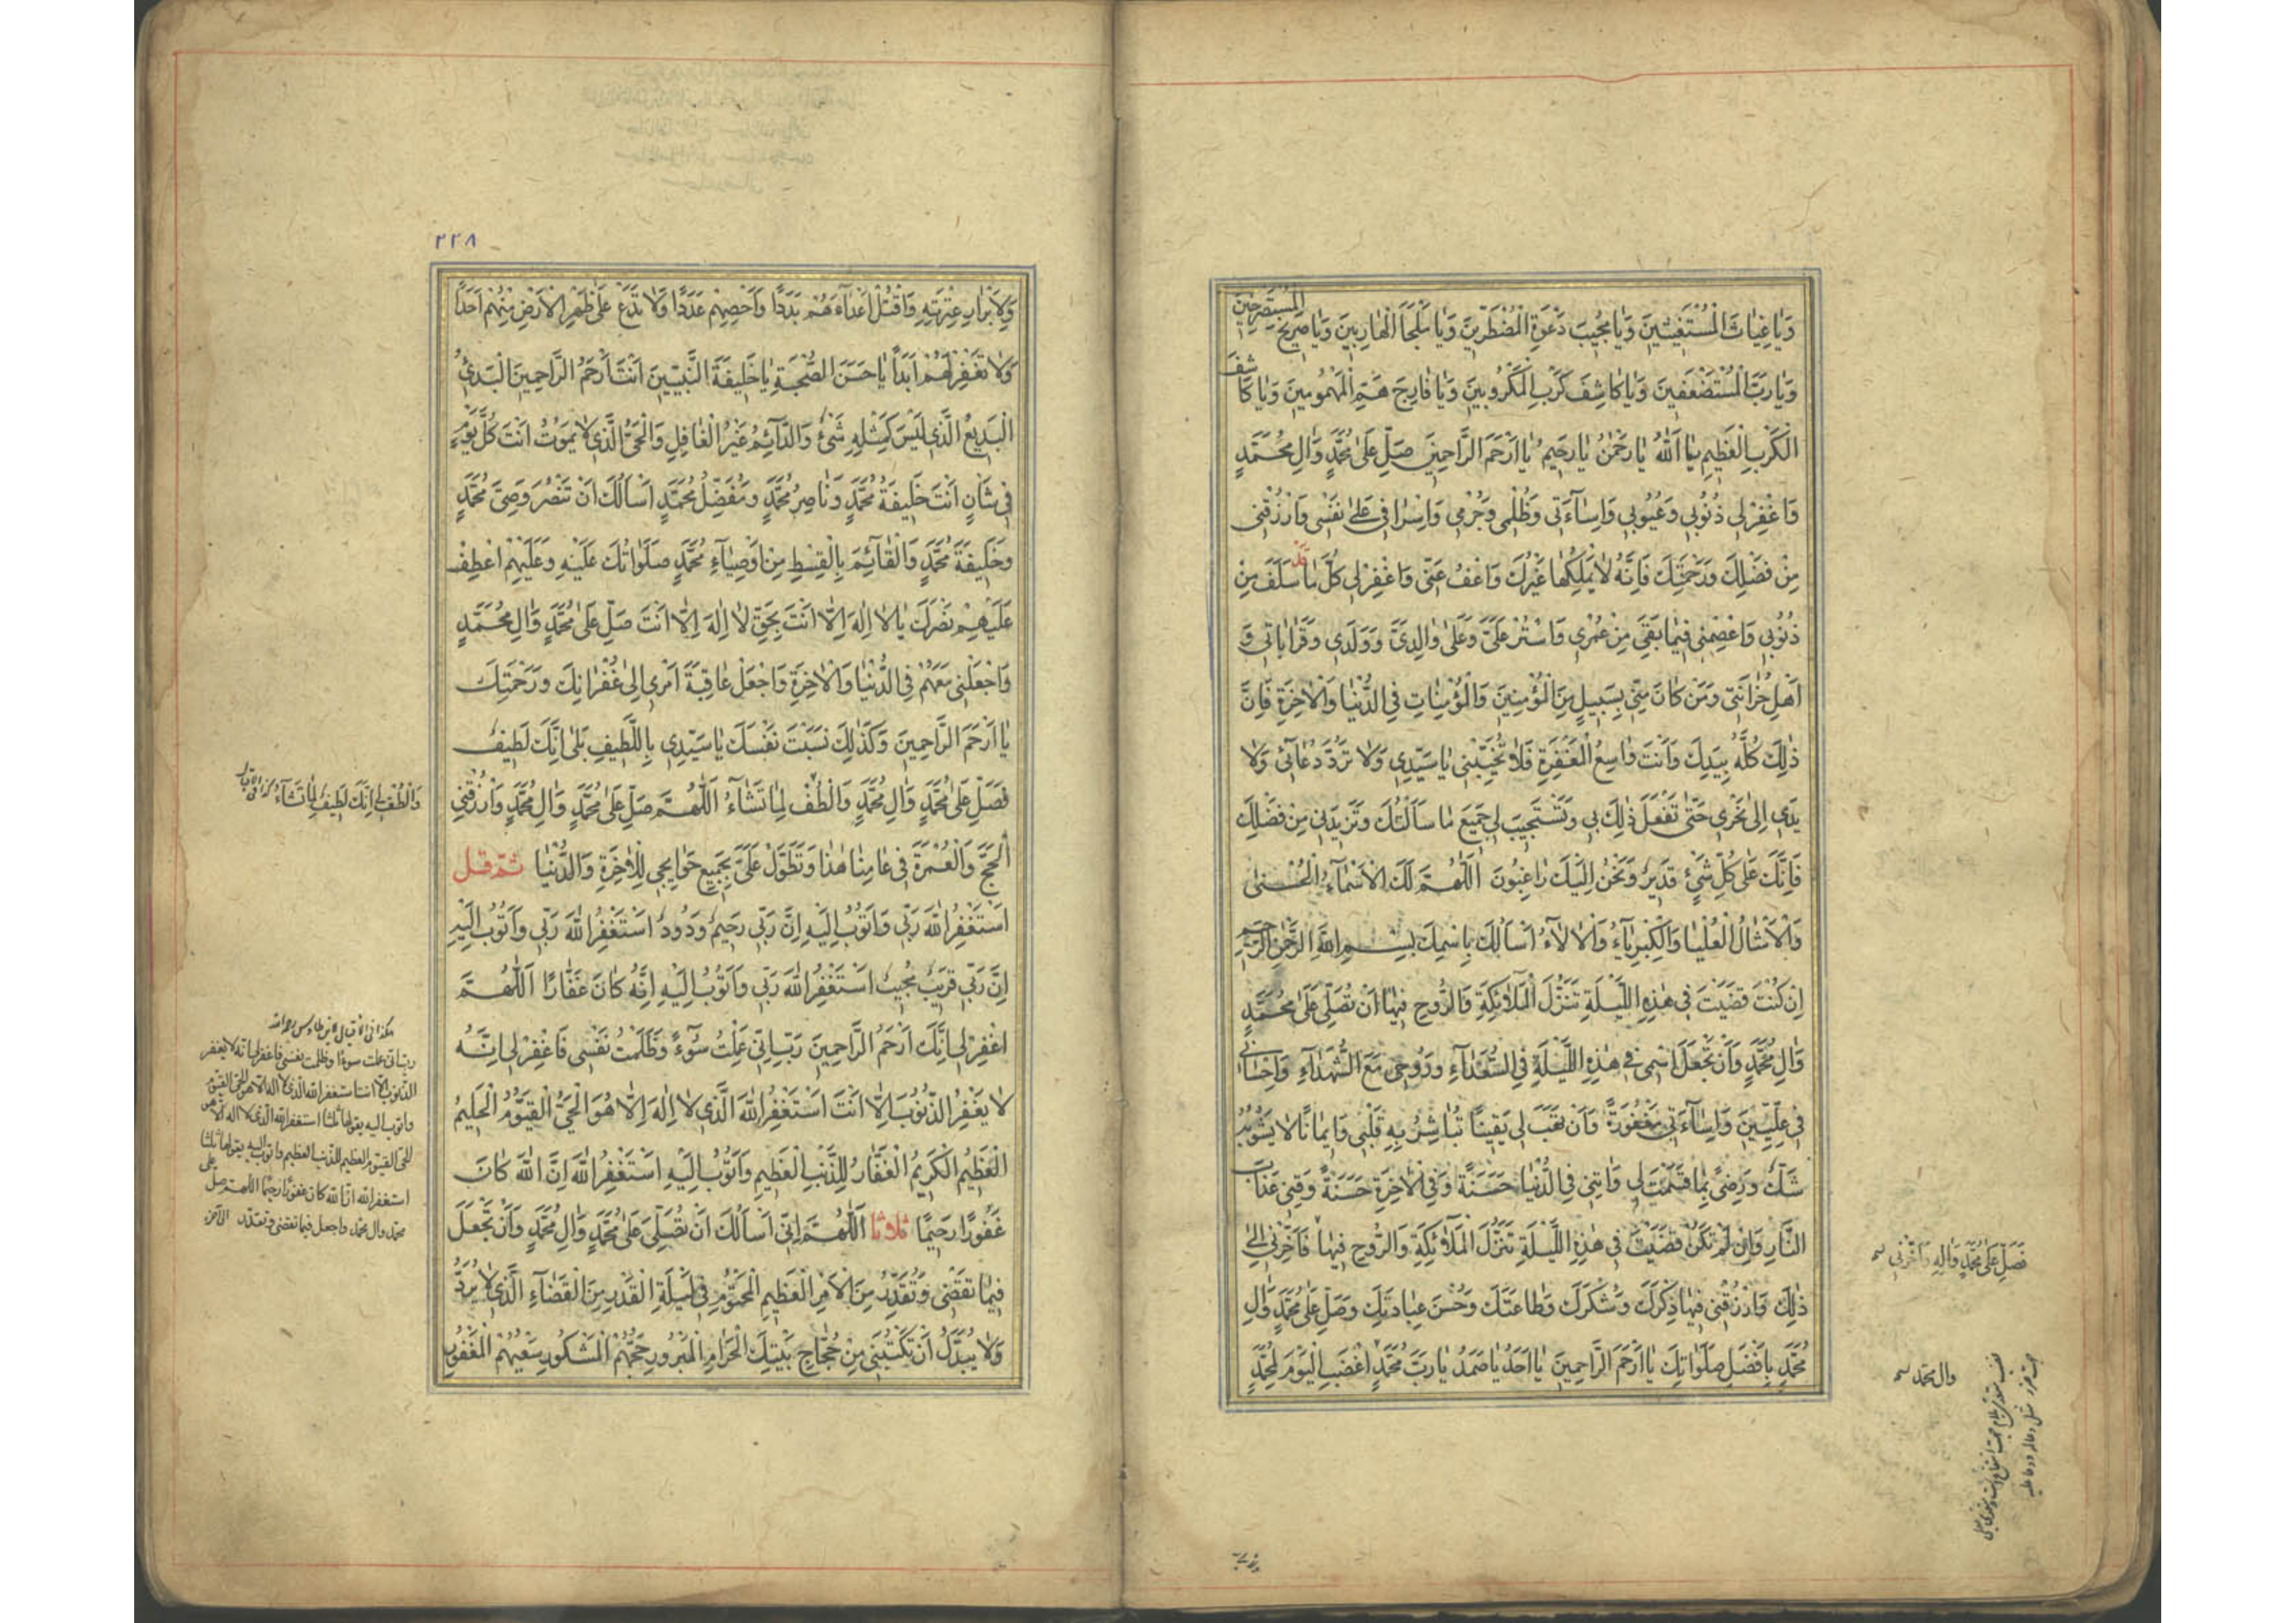 وَيَا غِيَاثَ الْمُسْتَغِيثِينَ وَيَا مُجِيبَ دَعْوَةِ الْمُضْطَرِّينَ وَيَا مَلْجَأَ الْهَارِبِينَ وَيَا صَرِيخَ الْمُسْتَصْرِخِينَ
وَيَا رَبَّ الْمُسْتَضْعَفِينَ وَيَا كَاشِفَ كَرْبِ الْمَكْرُوبِينَ وَيَا فَارِجَ هَمِّ الْمَهْمُومِينَ وَيَا كَاشِفَ
الْكَرْبِ الْعَظِيمِ يَا اَللّٰهُ يَا رَحْمٰنُ يَا رَحِيمُ يَا اَرْحَمَ الرَّاحِمِينَ صَلِّ عَلَى مُحَمَّدٍ وَاٰلِ مُحَمَّدٍ
وَاغْفِرْ لِي ذُنُوبِي وَعُيُوبِي وَاِسَاءَتِي وَظُلْمِي وَجُرْمِي وَاِسْرَافِي عَلَى نَفْسِي وَارْزُقْنِي
مِنْ فَضْلِكَ وَرَحْمَتِكَ فَاِنَّهُ لَا يَمْلِكُهَا غَيْرُكَ وَاعْفُ عَنِّي وَاغْفِرْ لِي كُلَّ مَا قَدْ سَلَفَ مِنْ
ذُنُوبِي وَاعْصِمْنِي فِيمَا بَقِيَ مِنْ عُمْرِي وَاسْتُرْ عَلَيَّ وَعَلَى وَالِدَيَّ وَوَلَدِي وَقَرَابَاتِي وَ
اَهْلِ حُزَانَتِي وَمَنْ كَانَ مِنِّي بِسَبِيلٍ مِنَ الْمُؤْمِنِينَ وَالْمُؤْمِنَاتِ فِي الدُّنْيَا وَالْاٰخِرَةِ فَاِنَّ
ذٰلِكَ كُلَّهُ بِيَدِكَ وَاَنْتَ وَاسِعُ الْمَغْفِرَةِ فَلَا تُخَيِّبْنِي يَا سَيِّدِي وَلَا تَرُدَّ دُعَائِي وَلَا
يَدِي اِلَى نَحْرِي حَتَّى تَفْعَلَ ذٰلِكَ بِي وَتَسْتَجِيبَ لِي جَمِيعَ مَا سَاَلْتُكَ وَتَزِيدَنِي مِنْ فَضْلِكَ
فَاِنَّكَ عَلَى كُلِّ شَيْءٍ قَدِيرٌ وَنَحْنُ اِلَيْكَ رَاغِبُونَ اَللّٰهُمَّ لَكَ الْاَسْمَاءُ الْحُسْنَى
وَالْاَمْثَالُ الْعُلْيَا وَالْكِبْرِيَاءُ وَالْاٰلَاءُ اَسْاَلُكَ بِاسْمِكَ بِسْمِ اللّٰهِ الرَّحْمٰنِ الرَّحِيمِ
اِنْ كُنْتَ قَضَيْتَ فِي هٰذِهِ اللَّيْلَةِ تَنَزُّلَ الْمَلَائِكَةِ وَالرُّوحِ فِيهَا اَنْ تُصَلِّيَ عَلَى مُحَمَّدٍ
وَاٰلِ مُحَمَّدٍ وَاَنْ تَجْعَلَ اسْمِي فِي هٰذِهِ اللَّيْلَةِ فِي السُّعَدَاءِ وَرُوحِي مَعَ الشُّهَدَاءِ وَاِحْسَانِي
فِي عِلِّيِّينَ وَاِسَاءَتِي مَغْفُورَةً وَاَنْ تَهَبَ لِي يَقِينًا تُبَاشِرُ بِهِ قَلْبِي وَاِيمَانًا لَا يَشُوبُهُ
شَكٌّ وَرِضًى بِمَا قَسَمْتَ لِي وَاٰتِنِي فِي الدُّنْيَا حَسَنَةً وَفِي الْاٰخِرَةِ حَسَنَةً وَقِنِي عَذَابَ
النَّارِ وَاِنْ لَمْ تَكُنْ قَضَيْتَ فِي هٰذِهِ اللَّيْلَةِ تَنَزُّلَ الْمَلَائِكَةِ وَالرُّوحِ فِيهَا فَاَخِّرْنِي اِلَى
ذٰلِكَ وَارْزُقْنِي فِيهَا ذِكْرَكَ وَشُكْرَكَ وَطَاعَتَكَ وَحُسْنَ عِبَادَتِكَ وَصَلِّ عَلَى مُحَمَّدٍ وَاٰلِ
مُحَمَّدٍ بِاَفْضَلِ صَلَوَاتِكَ يَا اَرْحَمَ الرَّاحِمِينَ يَا اَحَدُ يَا صَمَدُ يَا رَبَّ مُحَمَّدٍ اغْضَبِ الْيَوْمَ لِمُحَمَّدٍ
فَصَلِّ عَلَى مُحَمَّدٍ وَاٰلِهِ وَاَخِّرْنِي
وال محمد
٢٢٨
وَلِاَبْرَارِ عِتْرَتِهِ وَاقْتُلْ اَعْدَاءَهُمْ بَدَدًا وَاَحْصِهِمْ عَدَدًا وَلَا تَدَعْ عَلَى ظَهْرِ الْاَرْضِ مِنْهُمْ اَحَدًا
وَلَا تَغْفِرْ لَهُمْ اَبَدًا يَا حَسَنَ الصُّحْبَةِ يَا خَلِيفَةَ النَّبِيِّينَ اَنْتَ اَرْحَمُ الرَّاحِمِينَ الْبَدِيءُ
الْبَدِيعُ الَّذِي لَيْسَ كَمِثْلِهِ شَيْءٌ وَالدَّائِمُ غَيْرُ الْغَافِلِ وَالْحَيُّ الَّذِي لَا يَمُوتُ اَنْتَ كُلَّ يَوْمٍ
فِي شَاْنٍ اَنْتَ خَلِيفَةُ مُحَمَّدٍ وَنَاصِرُ مُحَمَّدٍ وَمُفَضِّلُ مُحَمَّدٍ اَسْاَلُكَ اَنْ تَنْصُرَ وَصِيَّ مُحَمَّدٍ
وَخَلِيفَةَ مُحَمَّدٍ وَالْقَائِمَ بِالْقِسْطِ مِنْ اَوْصِيَاءِ مُحَمَّدٍ صَلَوَاتُكَ عَلَيْهِ وَعَلَيْهِمْ اعْطِفْ
عَلَيْهِمْ نَصْرَكَ يَا لَا اِلٰهَ اِلَّا اَنْتَ بِحَقِّ لَا اِلٰهَ اِلَّا اَنْتَ صَلِّ عَلَى مُحَمَّدٍ وَاٰلِ مُحَمَّدٍ
وَاجْعَلْنِي مَعَهُمْ فِي الدُّنْيَا وَالْاٰخِرَةِ وَاجْعَلْ عَاقِبَةَ اَمْرِي اِلَى غُفْرَانِكَ وَرَحْمَتِكَ
يَا اَرْحَمَ الرَّاحِمِينَ وَكَذٰلِكَ نَسَبْتَ نَفْسَكَ يَا سَيِّدِي بِاللَّطِيفِ بَلَى اِنَّكَ لَطِيفٌ
فَصَلِّ عَلَى مُحَمَّدٍ وَاٰلِ مُحَمَّدٍ وَالْطُفْ لِمَا تَشَاءُ اَللّٰهُمَّ صَلِّ عَلَى مُحَمَّدٍ وَاٰلِ مُحَمَّدٍ وَارْزُقْنِي
الْحَجَّ وَالْعُمْرَةَ فِي عَامِنَا هٰذَا وَتَطَوَّلْ عَلَيَّ بِجَمِيعِ حَوَايِجِي لِلْاٰخِرَةِ وَالدُّنْيَا ثم قل
اَسْتَغْفِرُ اللّٰهَ رَبِّي وَاَتُوبُ اِلَيْهِ اِنَّ رَبِّي رَحِيمٌ وَدُودٌ اَسْتَغْفِرُ اللّٰهَ رَبِّي وَاَتُوبُ اِلَيْهِ
اِنَّ رَبِّي قَرِيبٌ مُجِيبٌ اَسْتَغْفِرُ اللّٰهَ رَبِّي وَاَتُوبُ اِلَيْهِ اِنَّهُ كَانَ غَفَّارًا اَللّٰهُمَّ
اغْفِرْ لِي اِنَّكَ اَرْحَمُ الرَّاحِمِينَ رَبِّ اِنِّي عَمِلْتُ سُوءً وَظَلَمْتُ نَفْسِي فَاغْفِرْ لِي اِنَّهُ
لَا يَغْفِرُ الذُّنُوبَ اِلَّا اَنْتَ اَسْتَغْفِرُ اللّٰهَ الَّذِي لَا اِلٰهَ اِلَّا هُوَ الْحَيُّ الْقَيُّومُ الْحَلِيمُ
الْعَظِيمُ الْكَرِيمُ الْغَفَّارُ لِلذَّنْبِ الْعَظِيمِ وَاَتُوبُ اِلَيْهِ اَسْتَغْفِرُ اللّٰهَ اِنَّ اللّٰهَ كَانَ
غَفُورًا رَحِيمًا ثلاثا اَللّٰهُمَّ اِنِّي اَسْاَلُكَ اَنْ تُصَلِّيَ عَلَى مُحَمَّدٍ وَاٰلِ مُحَمَّدٍ وَاَنْ تَجْعَلَ
فِيمَا تَقْضِي وَتُقَدِّرُ مِنَ الْاَمْرِ الْعَظِيمِ الْمَحْتُومِ فِي لَيْلَةِ الْقَدْرِ مِنَ الْقَضَاءِ الَّذِي لَا يُرَدُّ
وَلَا يُبَدَّلُ اَنْ تَكْتُبَنِي مِنْ حُجَّاجِ بَيْتِكَ الْحَرَامِ الْمَبْرُورِ حَجُّهُمْ الْمَشْكُورِ سَعْيُهُمْ الْمَغْفُورِ
وَالْطُفْ لِي اِنَّكَ لَطِيفٌ لِمَا تَشَاءُ
هكذا في الاقبال لابن طاوس رحمه الله
رب اني عملت سوءا وظلمت نفسي فاغفر لي انه لا يغفر
الذنوب الا انت استغفر الله الذي لا اله الا هو الحي القيوم
واتوب اليه يقولها ثلثا استغفر الله الذي لا اله الا هو
الحي القيوم العظيم للذنب العظيم واتوب اليه يقولها ثلثا
استغفر الله ان الله كان غفورا رحيما اللهم صل على
محمد وال محمد واجعل فيما تقضي وتقدر الى آخر